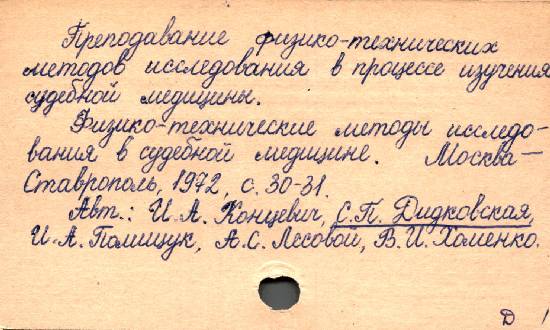 Преподавание физико-технических
методов исследования в процессе изучения
судебной медицины.
Физико-технические методы исследо-
вания в судебной медицине. Москва—
Ставрополь, 1972, с. 30-31.
Авт.: И.А. Концевич, С.П. Дидковская,
И.А. Полищук, А.С. Лесовой, В.И. Хоменко.
Д